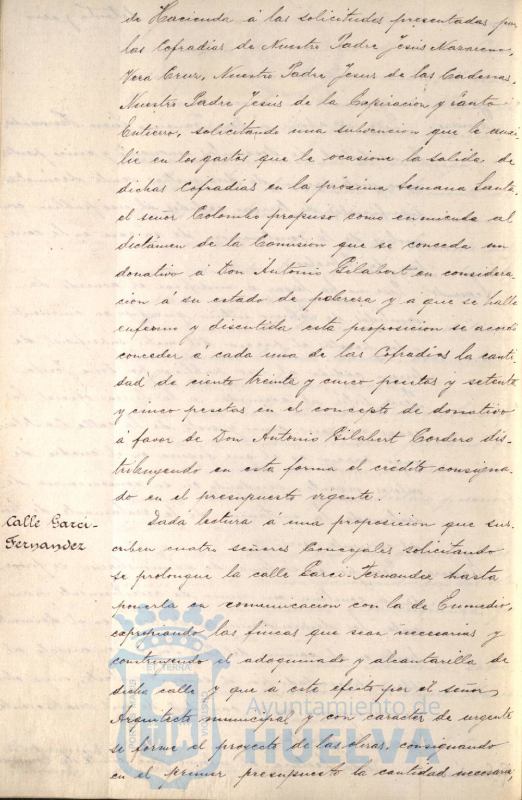 de Hacienda á las solicitudes presentadas por
las Cofradias de Nuestro Padre Jesús Nazareno,
Vera Cruz, Nuestro Padre Jesus de las Cadenas,
Nuestro Padre Jesús de la Expiracion y Santo
Entierro, solicitando una subvencion que le auxi-
lie en los gastos que le ocasione la salida de
dichas Cofradias en la próxima Semana Santa
el señor Colombo propuso como enmienda al
dictámen de la Comision que se conceda un
donativo á Don Antonio Gilabert en considera-
cion á su estado de pobreza y á que se halla
enfermo y discutida esta proposicion se acordó
conceder á cada una de las Cofradias la canti-
dad de ciento treinta y cinco pesetas y setenta
y cinco pesetas en el concepto de donativo
á favor de Don Antonio Gilabert Cordero dis-
tribuyendo en esta forma el crédito consigna-
do en el presupuesto vigente.
Calle Garci-
Fernandez
Dada lectura á una proposicion que sus-
criben cuatro señores Concejales solicitando
se prolongue la calle Garci-Fernandez hasta
ponerla en comunicacion con la de Enmedio,
expropiando las fincas que sean necesarias y
construyendo el adoquinado y alcantarilla de
dicha calle y que á este efecto por el señor
Arquitecto municipal y con caracter de urgente
se forme el proyecto de las obras, consignando
en el primer presupuesto la cantidad necesaria,
Ayuntamiento de
HUELVA